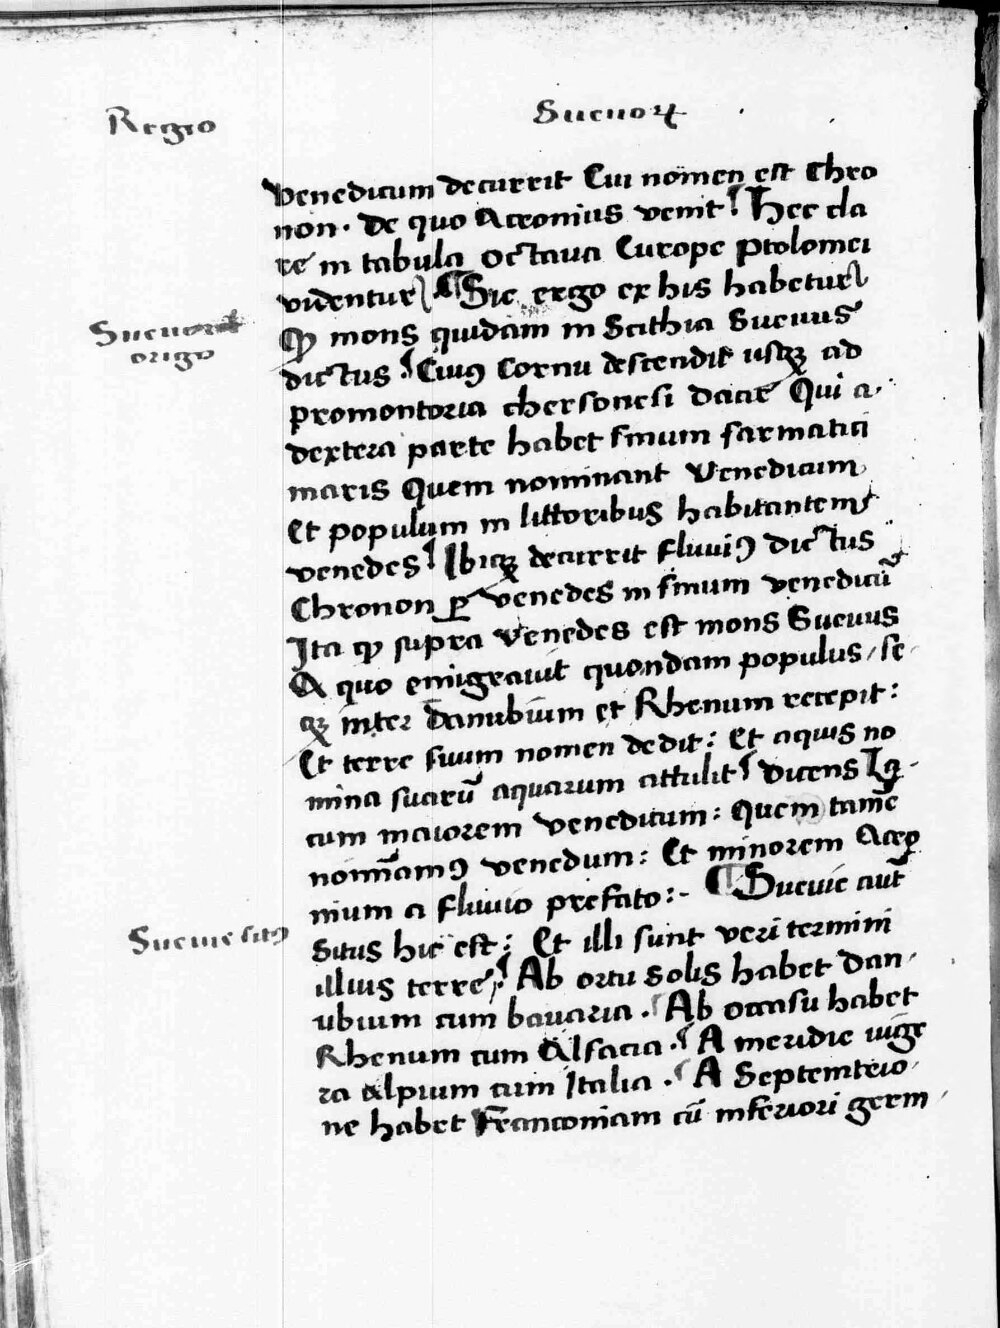 Regio
Sueuoꝝ
venedicum decurrit Cui nomen est Chro
non. De quo Acronius venit Hec cla
re in tabula octaua Europe Ptolomei
videntur ¶ Sic ergo ex his habetur
ꝙ mons quidam in Scithia Sueuus
Sueuorum
origo
dictus Cuiꝰ Cornu descendit usqꝫ ad
promontoria chersonesi Dacie Qui a
dextera parte habet sinum sarmatici
maris Quem nominant Venedicum
Et populum in littoribus habitantem
venedes Ibiqꝫ decurrit fluuiꝰ dictus
Chronon ꝑ venedes in sinum venedicū
Ita ꝙ supra Venedes est mons Sueuus
A quo emigrauit quondam populus / se
qꝫ inter danubium et Rhenum recepit:
Et terre suum nomen dedit: Et aquis no
mina suarū aquarum attulit dicens La
cum maiorem venedicum: Quem tamē
nominamꝰ venedum: Et minorem Acro
nium a fluuio prefato:- ¶ Sueuie aut
Sueuie sitꝰ
Situs hic est: Et illi sunt veri termini
illius terre: Ab ortu solis habet Dan
ubium cum bauaria. Ab occasu habet
Rhenum cum Alsacia. A meridie iuge
ra Alpium cum Italia. A Septemtrio
ne habet Franconiam cū inferiori germ